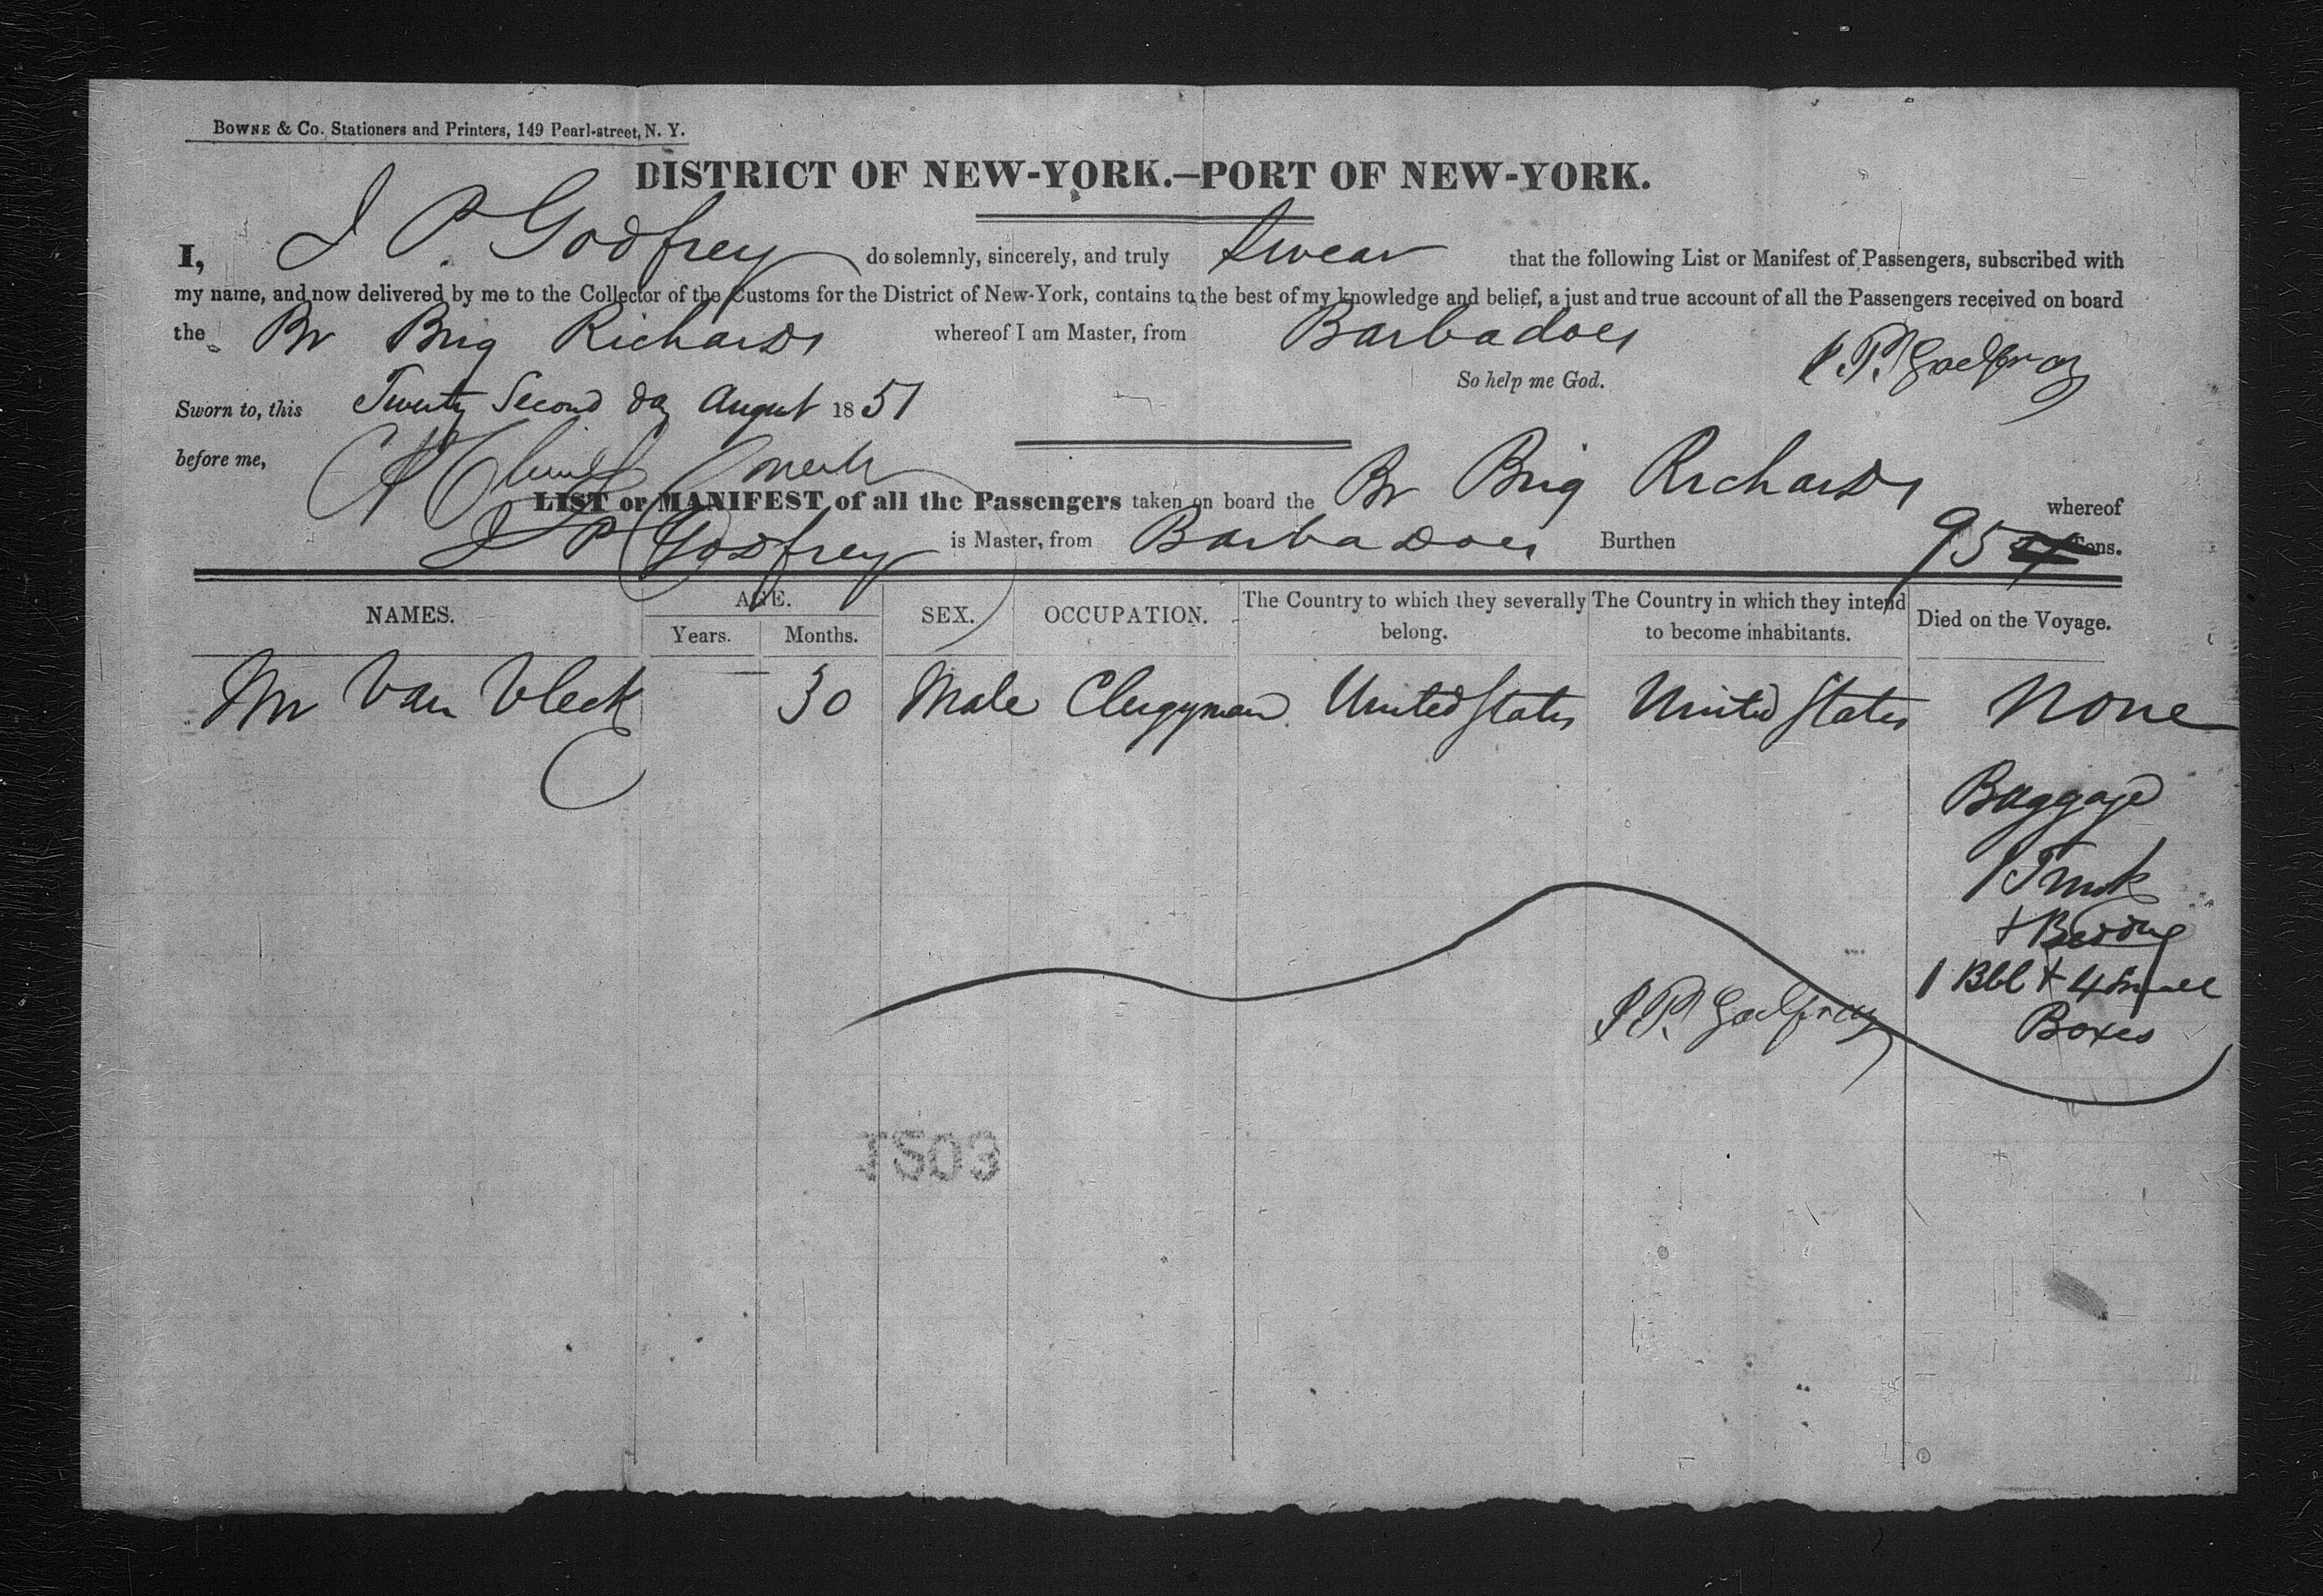 BOWNE & CO. Stationers and Printers, 149 Pearl-street, N. Y.
DISTRICT OF NEW-YORK.—PORT OF NEW-YORK.
I, J P. Godfrey do solemnly, sincerely, and truly swear that the following List or Manifest of Passengers, subscribed with
my name, and now delivered by me to the Collector of the Customs for the District of New-York, contains to the best of my knowledge and belief, a just and true account of all the Passengers received on board
the Br Brig Richards whereof I am Master, from Barbadoes
So help me God. J. P. Godfray
Sworn to, this Twenty Second day August 1851
before me,
LIST or MANIFEST of all the Passengers taken on board the Br Brig Richards whereof
J P Godfrey is Master, from Barbadoes Burthen 95 Tons.
NAMES. AGE. SEX. OCCUPATION. The Country to which they severally belong. The Country in which they intend to become inhabitants. Died on the Voyage.
Years. Months.
Mr Van Vleck 30 Male Clergyman. United States United States None
Baggage
1 Trunk
+ Bedding
1 Bbl + 4 Small
Boxes
J. P. Godfray
1503